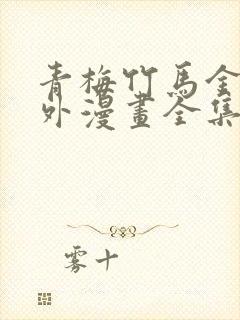 青梅竹馬金
外漫畫全集
雾十